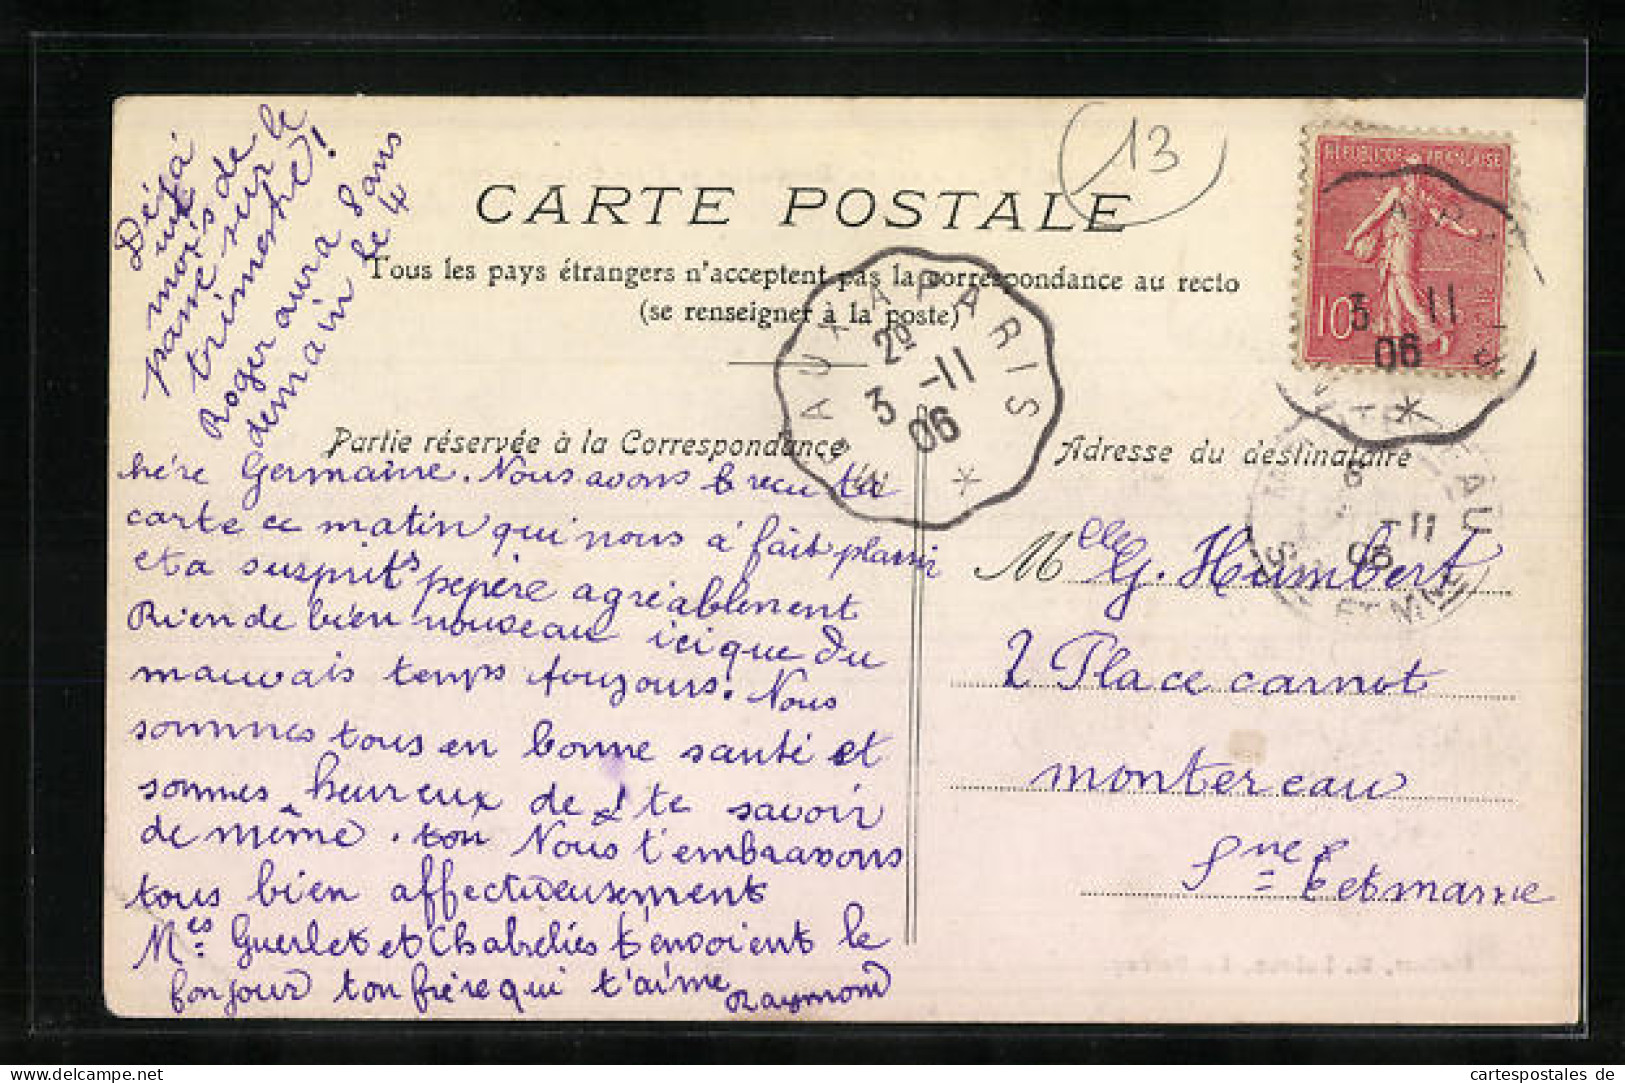 Déjà
un
mois de
passé sur le
trimestre!
Roger aura 8 ans
demain le 4
13
CARTE POSTALE
Tous les pays étrangers n'acceptent pas la correspondance au recto
(se renseigner à la poste)
REPUBLIQUE FRANÇAISE
10
3 11
06
MEAUX A PARIS
2º
3 -11
06
Partie réservée à la Correspondance
Adresse du destinataire
hère Germaine. Nous avons reçu ta
carte ce matin qui nous a fait plaisir
et a pepère agréablement
Rien de bien nouveau ici que du
mauvais temps toujours. Nous
sommes tous en bonne santé et
sommes heureux de te savoir
de même. ton Nous t'embrassons
tous bien affectueusement
Mes Guerlet et Chabreliés t'envoient le
bonjour ton frère qui t'aime Raymond
MONTEREAU
6
-11
06
SEINE ET MARNE
Mlle G. Humbert
2 Place carnot
montereau
Sne = et marne
cartespostales de